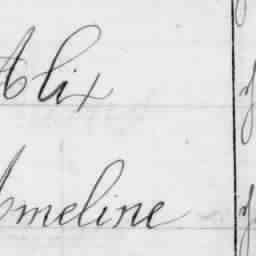 Alix
Ameline